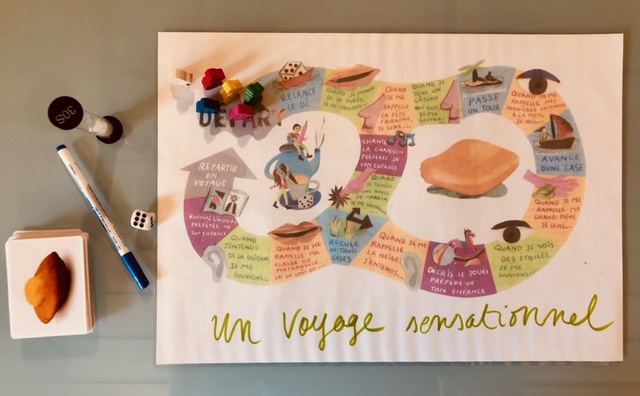 30S
DÉPART
RELANCE
LE DÉ
QUAND JE MANGE
DE LA PURÉE,
JE ME SOUVIENS...
QUAND
JE ME
RAPPELLE
LA FÊTE
FORAINE,
JE SENS...
QUAND JE
SENS UN
GÂTEAU
JE ME
SOUVIENS...
PASSE
UN TOUR
QUAND JE ME
RAPPELLE MES
VACANCES
À LA MER,
JE VOIS...
AVANCE
D'UNE CASE
QUAND JE ME
RAPPELLE MA
GRAND-MÈRE,
JE SENS...
QUAND JE VOIS
DES ÉTOILES
JE ME
SOUVIENS...
DÉCRIS LE JOUET
PRÉFÉRÉ DE
TON ENFANCE
QUAND JE ME
RAPPELLE
LA NEIGE,
J'ENTENDS...
RECULE
DE TROIS
CASES
QUAND JE ME
RAPPELLE MA
CLASSE DE
MATERNELLE,
J'AI UN GOÛT DE...
QUAND
J'ENTENDS
JE ME
SOUVIENS...
RACONTE L'HISTOIRE
PRÉFÉRÉE DE
TON ENFANCE
REPARTIR
EN
VOYAGE
CHANTE
LA CHANSON
PRÉFÉRÉE DE
TON ENFANCE
QUAND
JE TOUCHE
UN voyage sensationnel